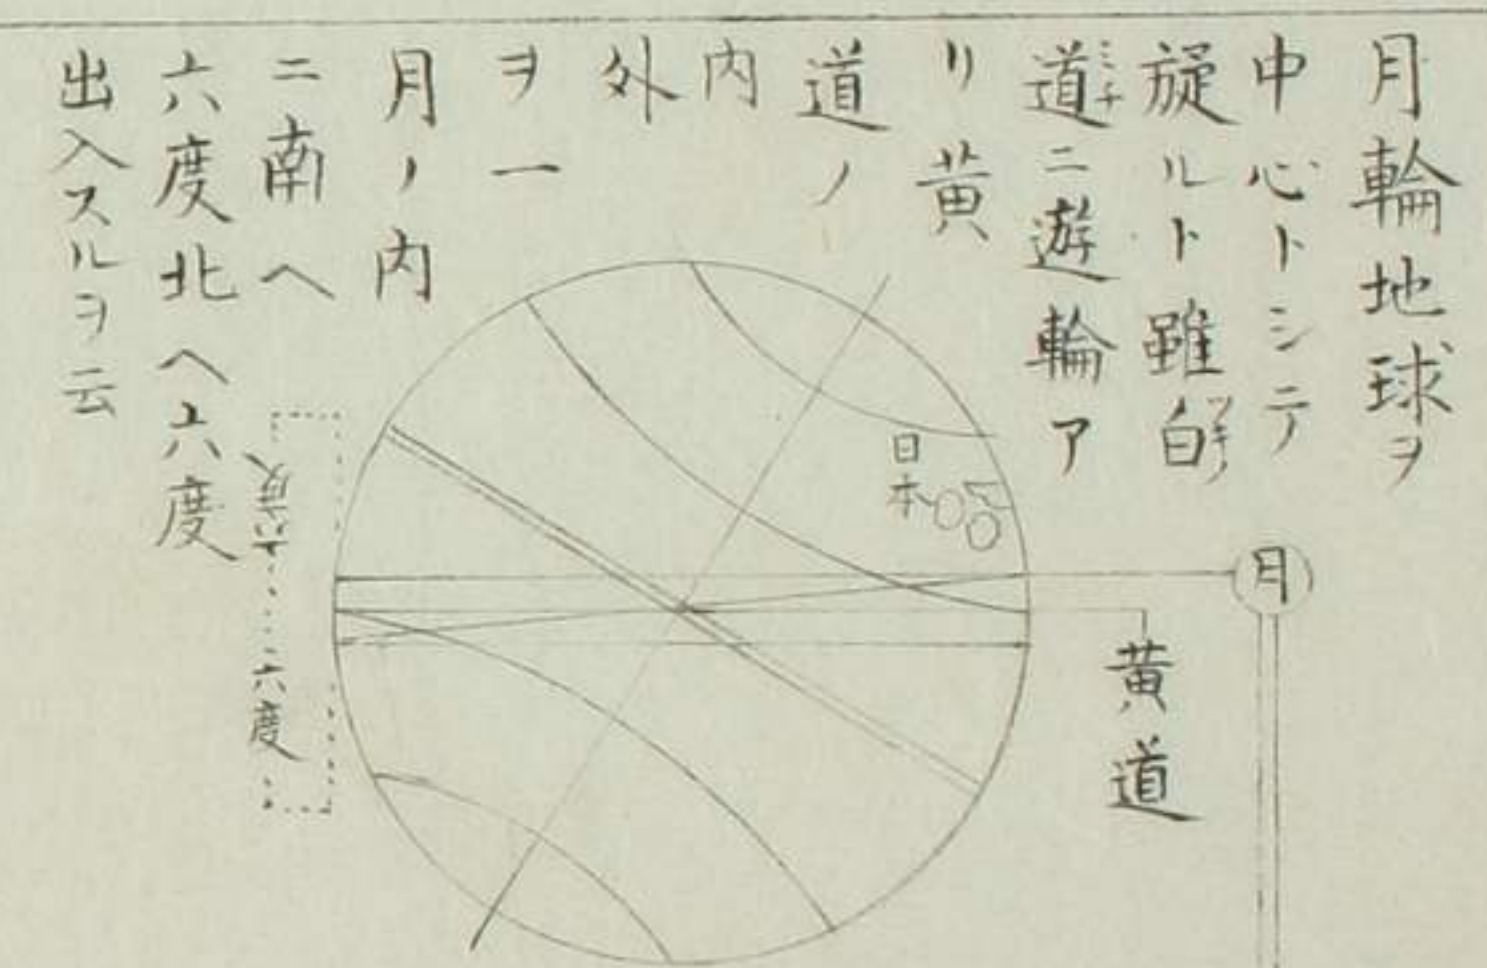 月輪地球ヲ
中心トシテ
旋ルト雖白ツキノ
道ミチニ遊輪ア
リ黄
道ノ
内
外
ヲ一
月ノ内
ニ南ヘ
六度北ヘ六度
出入スルヲ云
日本
月
黄道
六度